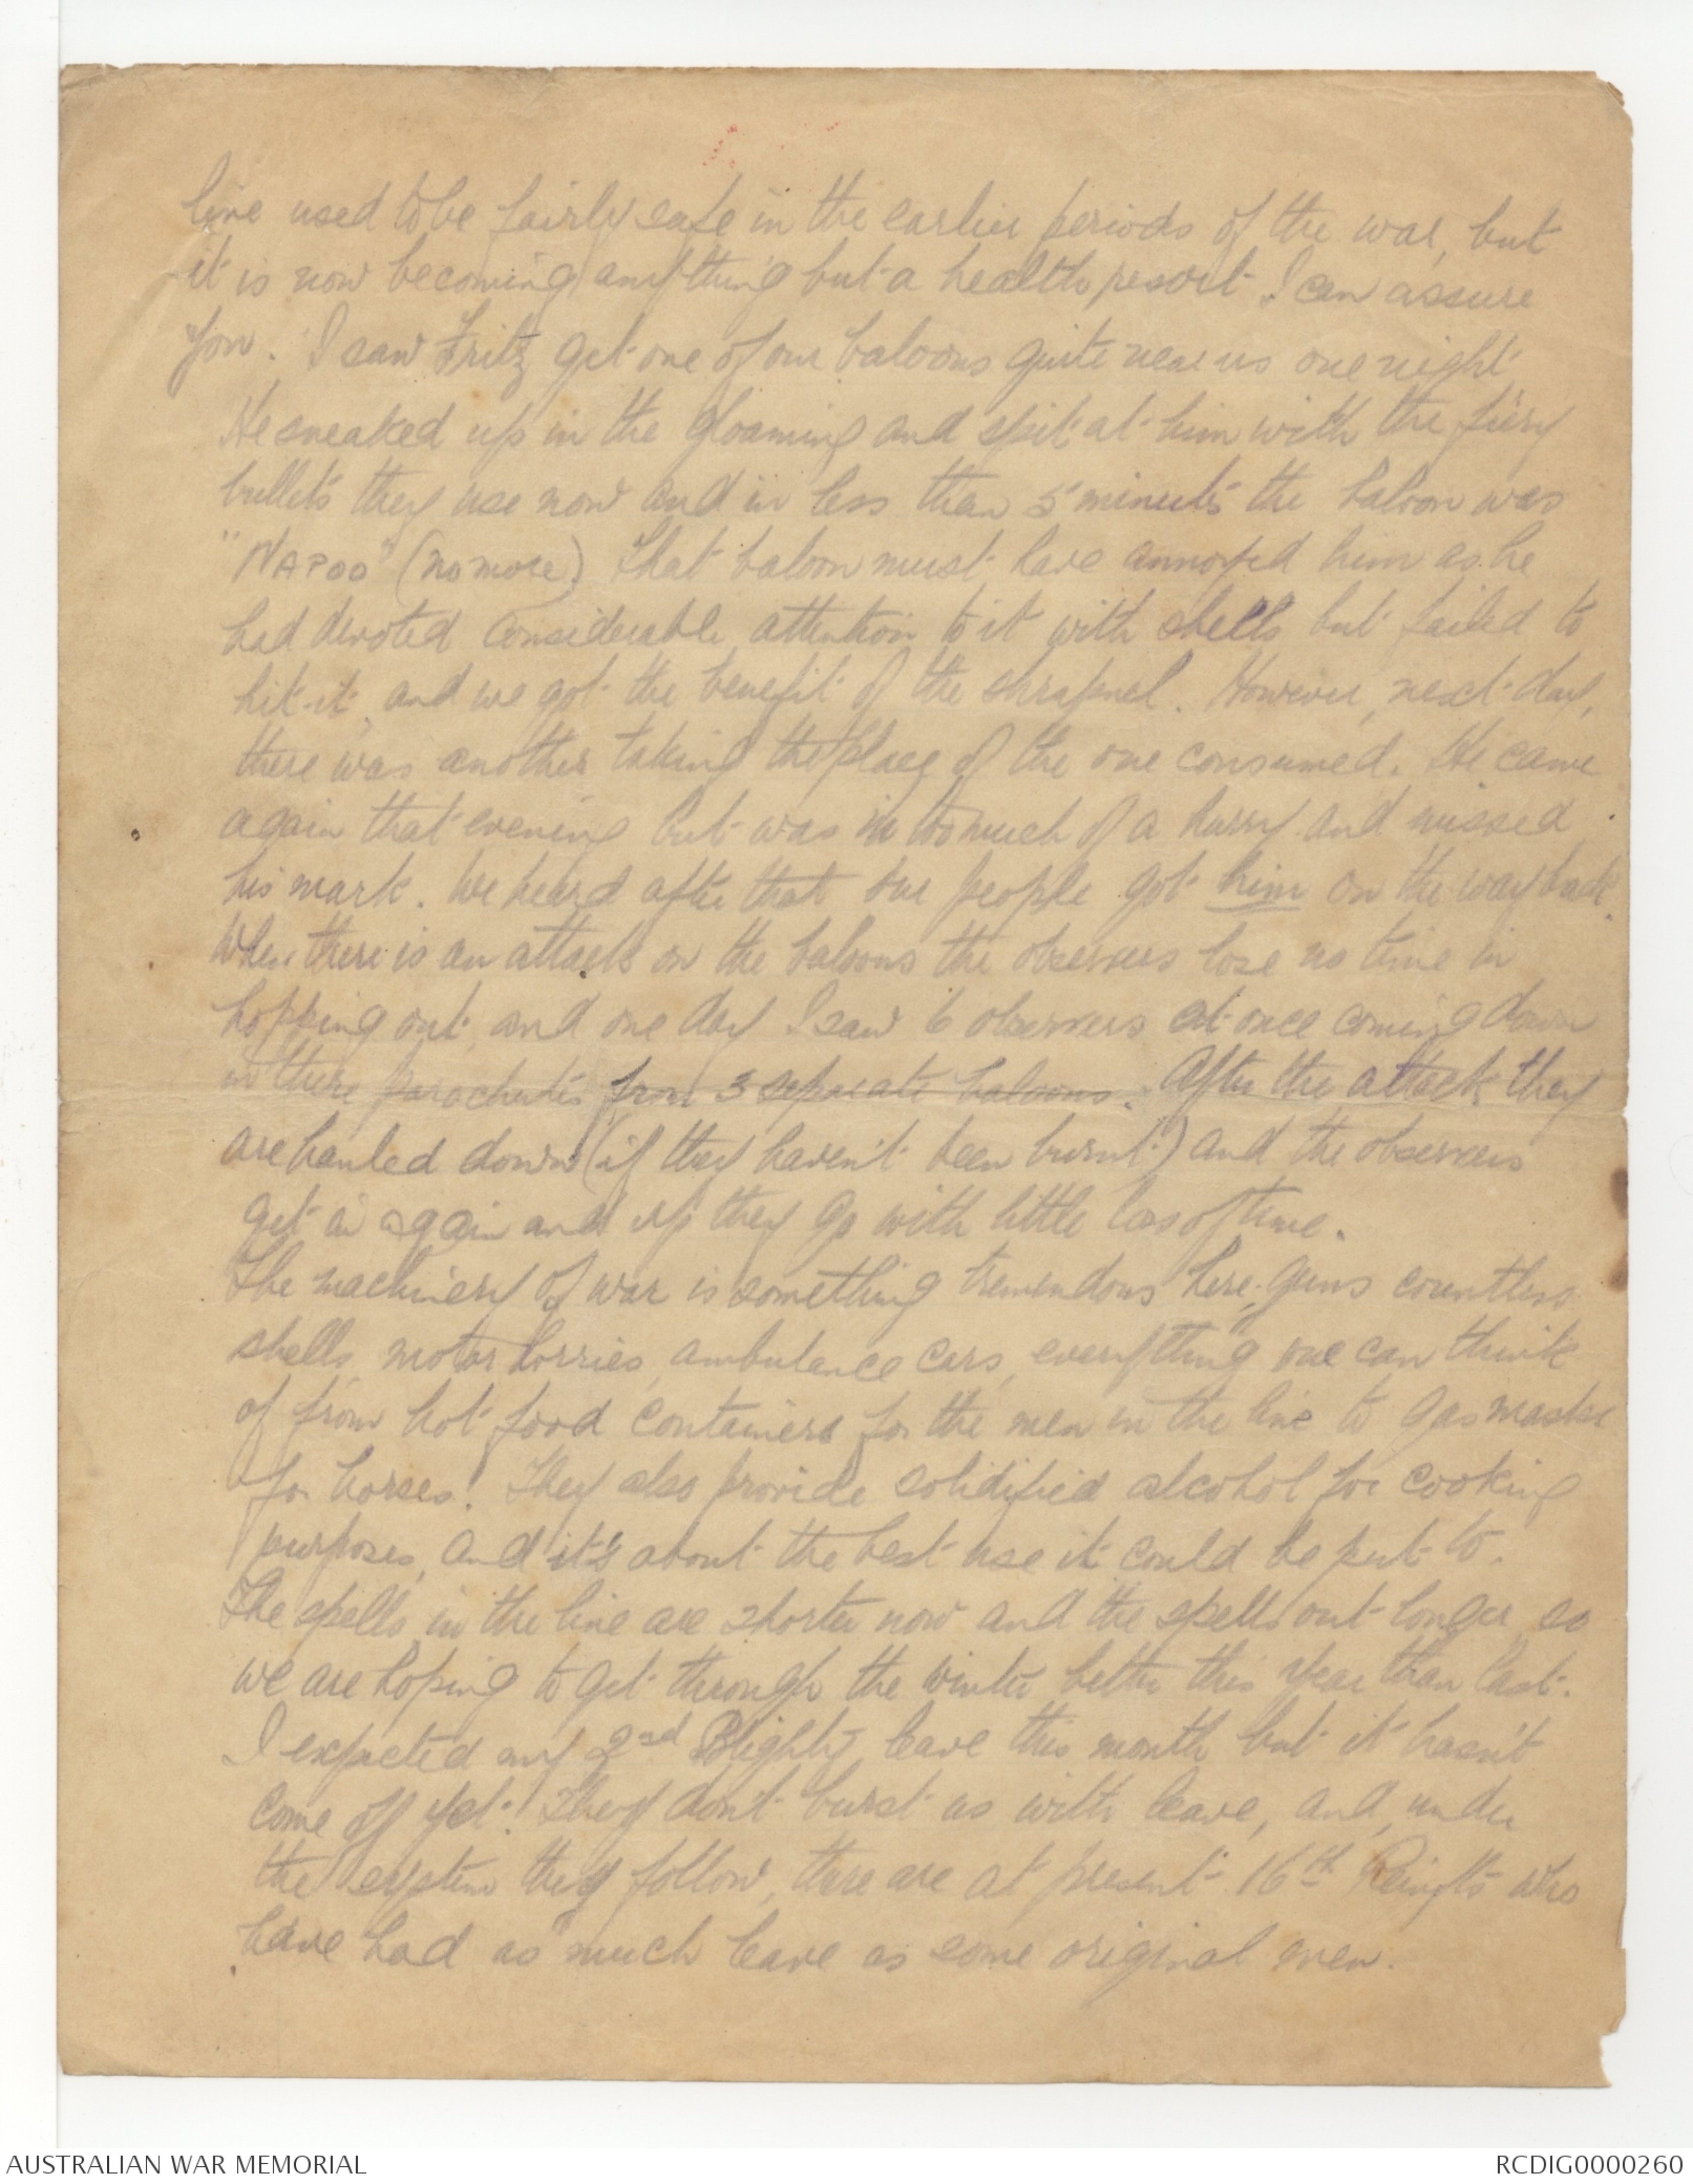 line used to be fairly safe in the earlier periods of the war, but
it is now becoming anything but a health resort I can assure
you. I saw Fritz get one of our baloons quite near us one night
He sneaked up in the gloaming and spit at him with the fiery
bullets they use now and in less than 5 minutes the baloon was
"NAPOO" (no more) That baloon must have annoyed him as he
had devoted considerable attention to it with shells but failed to
hit it, and we got the benefit of the shrapnel. However, next day,
there was another taking the place of the one consumed. He came
again that evening but was in too much of a hurry and missed
his mark. We heard after that our people got him on the way back.
When there is an attack on the baloons the observers lose no time in
hopping out, and one day I saw 6 observers at once coming down
in there parachutes from 3 separate baloons. After the attack they
are hauled down (if they haven't been burnt) and the observers
get in again and up they go with little loss of time.
The machinery of war is something tremendous here, guns countless
shells, motor lorries, ambulance cars, everything one can think
of from hot food containers for the men in the line to gas masks
for horses! They also provide solidified alcohol for cooking
purposes, and it's about the best use it could be put to.
The spells in the line are shorter now and the spells out longer, so
we are hoping to get through the winter better this year than last.
I expected my 2nd Blighty leave this month but it hasn't
come off yet! They don't burst us with leave, and, under
the system they follow, there are at present 16th Reinfts who
have had as much leave as some original men.
AUSTRALIAN WAR MEMORIAL
RCDIG0000260